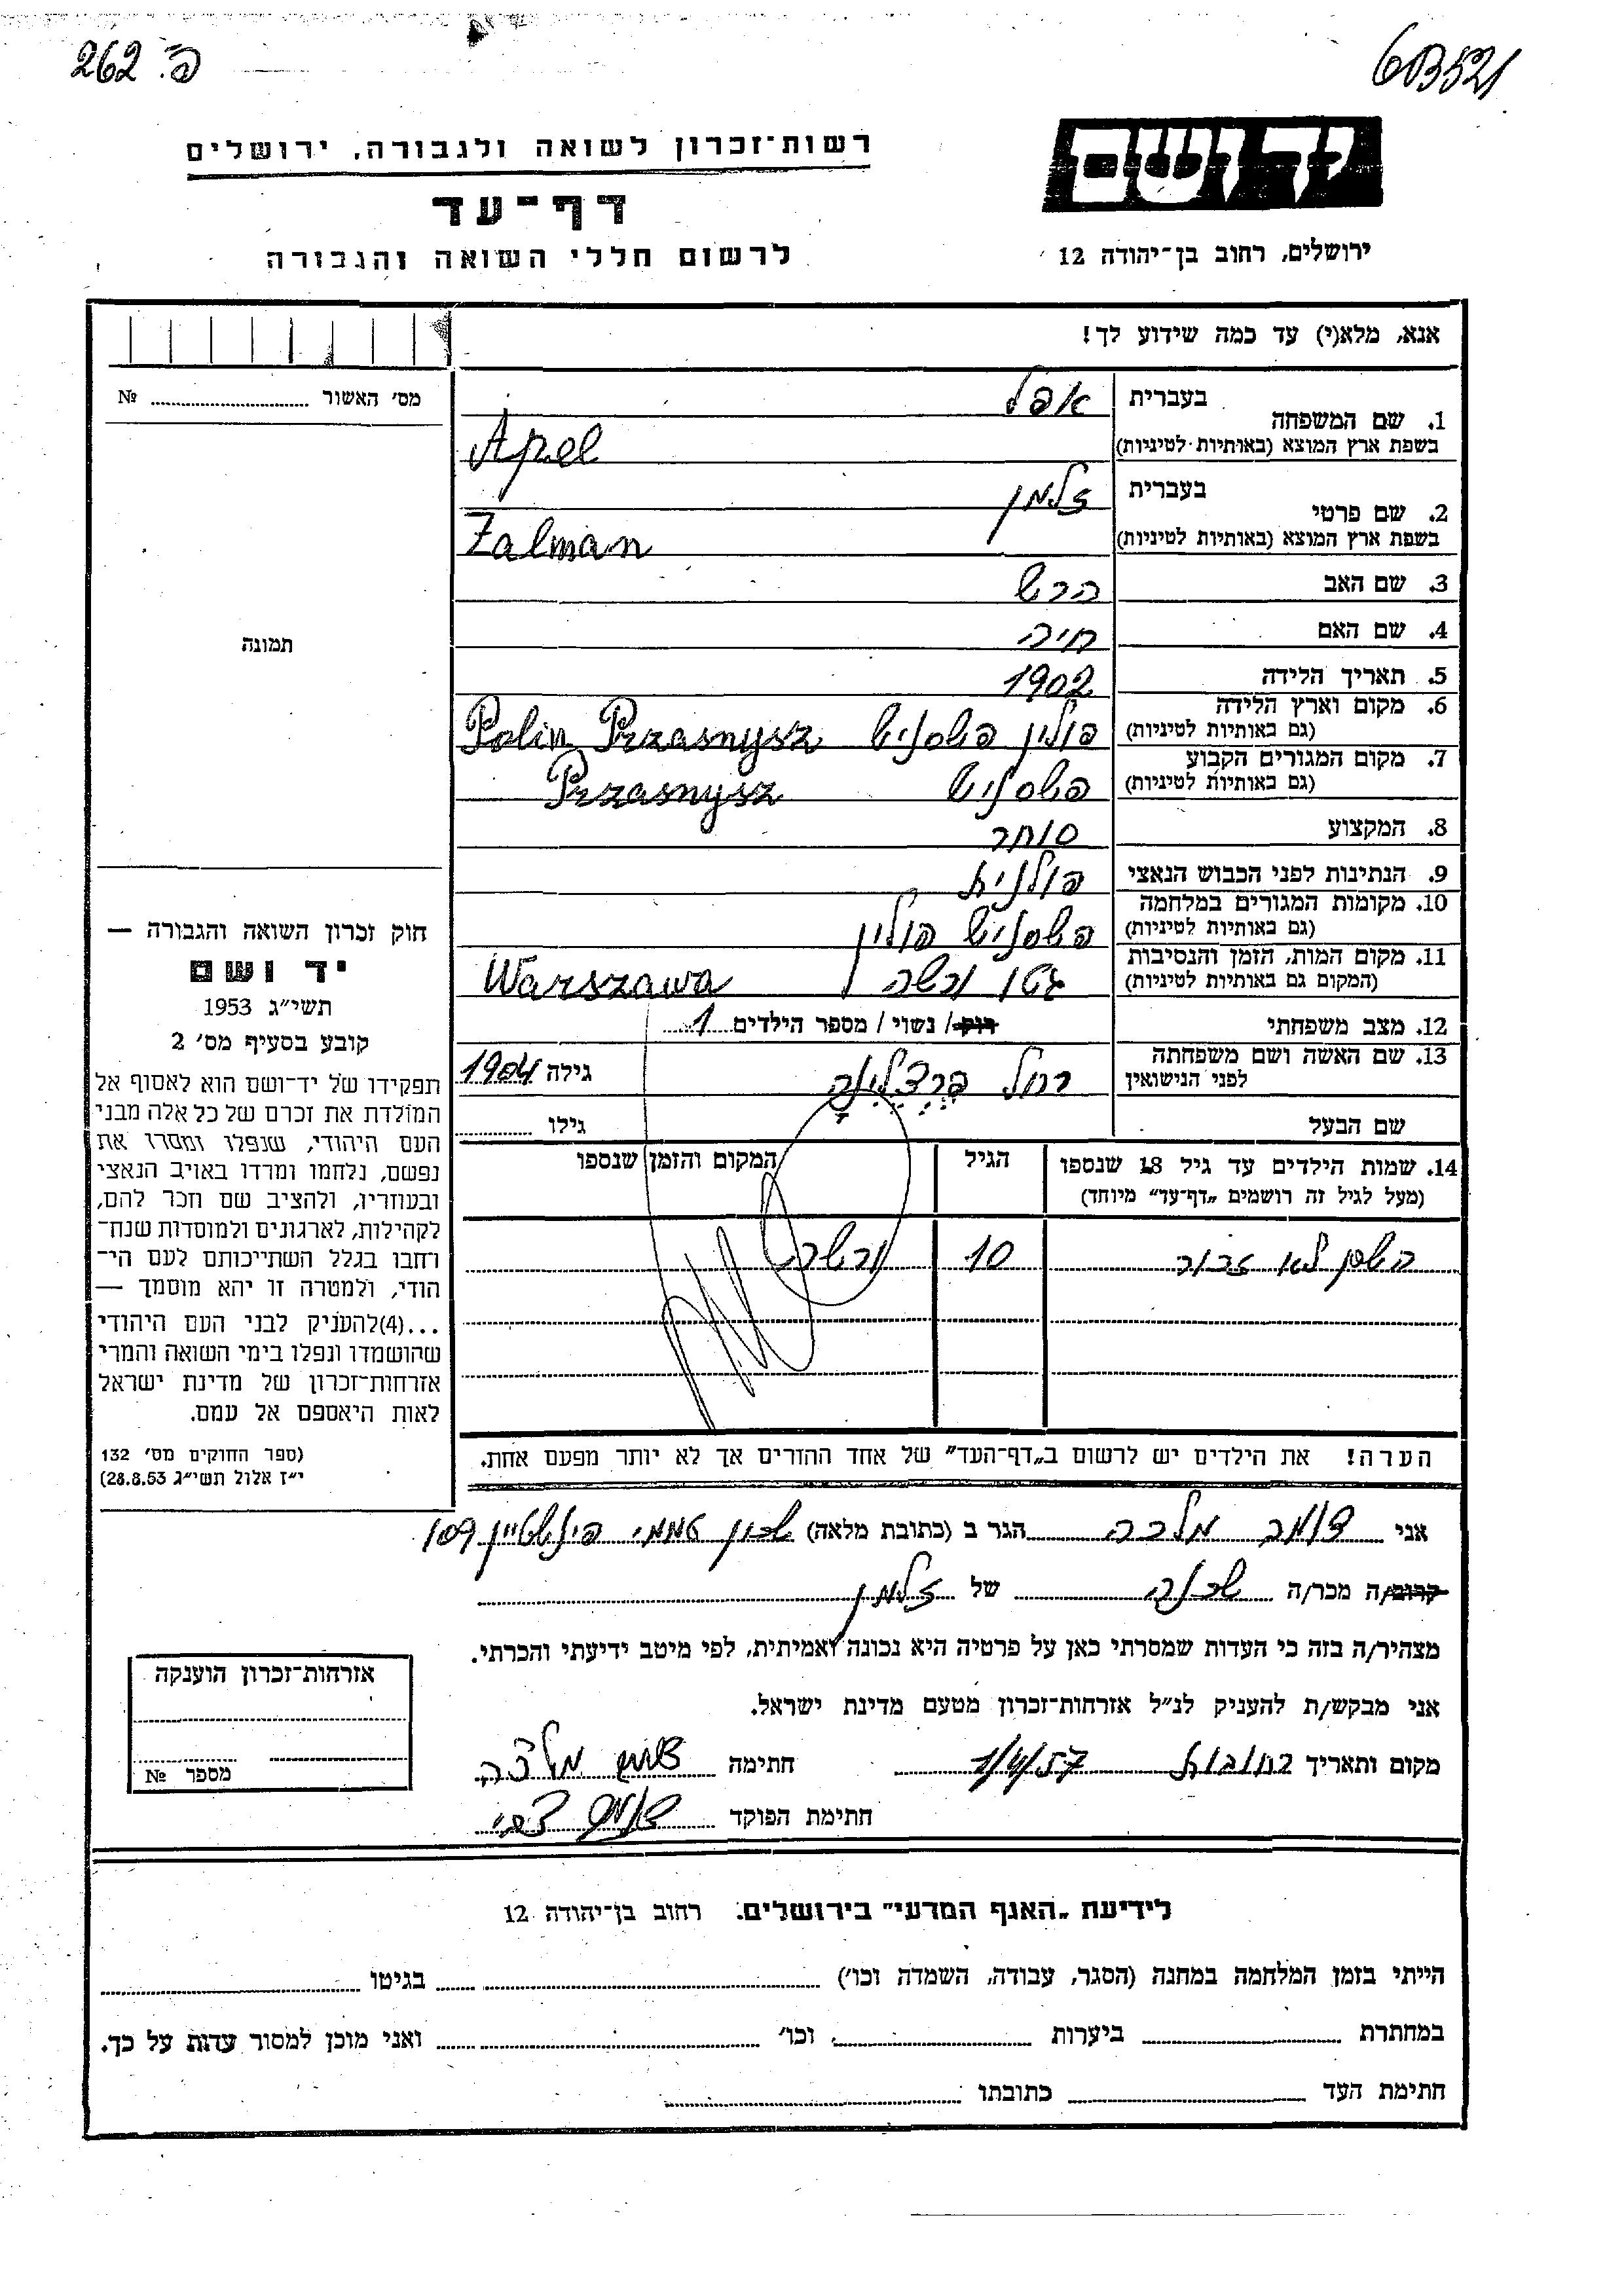 262 .פ
603521
יד ושם
ירושלים, רחוב בן־יהודה 12
רשות־זכרון לשואה ולגבורה, ירושלים
דף־עד
לרשום חללי השואה והגבורה
אנא, מלא(י) עד כמה שידוע לך!
מס׳ האשור ........ №
1. שם המשפחה בעברית אפל
בשפת ארץ המוצא (באותיות לטיניות) Apel
2. שם פרטי בעברית זלמן
בשפת ארץ המוצא (באותיות לטיניות) Zalman
3. שם האב הרש
4. שם האם חיה
5. תאריך הלידה 1902
6. מקום וארץ הלידה (גם באותיות לטיניות) פולין פשסניש Polin Przasnysz
7. מקום המגורים הקבוע (גם באותיות לטיניות) פשסניש Przasnysz
8. המקצוע סוחר
9. הנתינות לפני הכבוש הנאצי פולנית
10. מקומות המגורים במלחמה (גם באותיות לטיניות) פשסניש פולין
11. מקום המות, הזמן והנסיבות (המקום גם באותיות לטיניות) גטו ורשה Warszawa
12. מצב משפחתי רוק/ נשוי / מספר הילדים 1
13. שם האשה ושם משפחתה לפני הנישואין רחל גילה 1904
שם הבעל גילו
14. שמות הילדים עד גיל 18 שנספו (מעל לגיל זה רושמים „דף־עד״ מיוחד) הגיל המקום והזמן שנספו
השם לא זכור 10 ורשה
הערה! את הילדים יש לרשום ב„דף־העד״ של אחד ההורים אך לא יותר מפעם אחת.
תמונה
חוק זכרון השואה והגבורה —
יד ושם
תשי״ג 1953
קובע בסעיף מס׳ 2
תפקידו של יד־ושם הוא לאסוף אל
המולדת את זכרם של כל אלה מבני
העם היהודי, שנפלו ומסרו את
נפשם, נלחמו ומרדו באויב הנאצי
ובעוזריו, ולהציב שם וזכר להם,
לקהילות, לארגונים ולמוסדות שנח־
רחבו בגלל השתייכותם לעם הי־
הודי, ולמטרה זו יהא מוסמך —
...(4)להעניק לבני העם היהודי
שהושמדו ונפלו בימי השואה והמרי
אזרחות־זכרון של מדינת ישראל
לאות היאספם אל עמם.
(ספר החוקים מס׳ 132
י״ז אלול תשי״ג 28.8.53)
אני מלכה הגר ב (כתובת מלאה) שכון עממי 109
קרוב/ה מכר/ה שכנה של זלמן
מצהיר/ה בזה כי העדות שמסרתי כאן על פרטיה היא נכונה ואמיתית, לפי מיטב ידיעתי והכרתי.
אני מבקש/ת להעניק לנ״ל אזרחות־זכרון מטעם מדינת ישראל.
מקום ותאריך רחובות 1/4/57 חתימה מלכה
חתימת הפוקד צבי
אזרחות־זכרון הוענקה
מספר №
לידיעת „האגף המדעי״ בירושלים. רחוב בן־יהודה 12
הייתי בזמן המלחמה במחנה (הסגר, עבודה, השמדה וכו׳) ........ בגיטו ........
במחתרת ........ ביערות ........ וכו׳ ........ ואני מוכן למסור עדות על כך.
חתימת העד ........ כתובתו ........